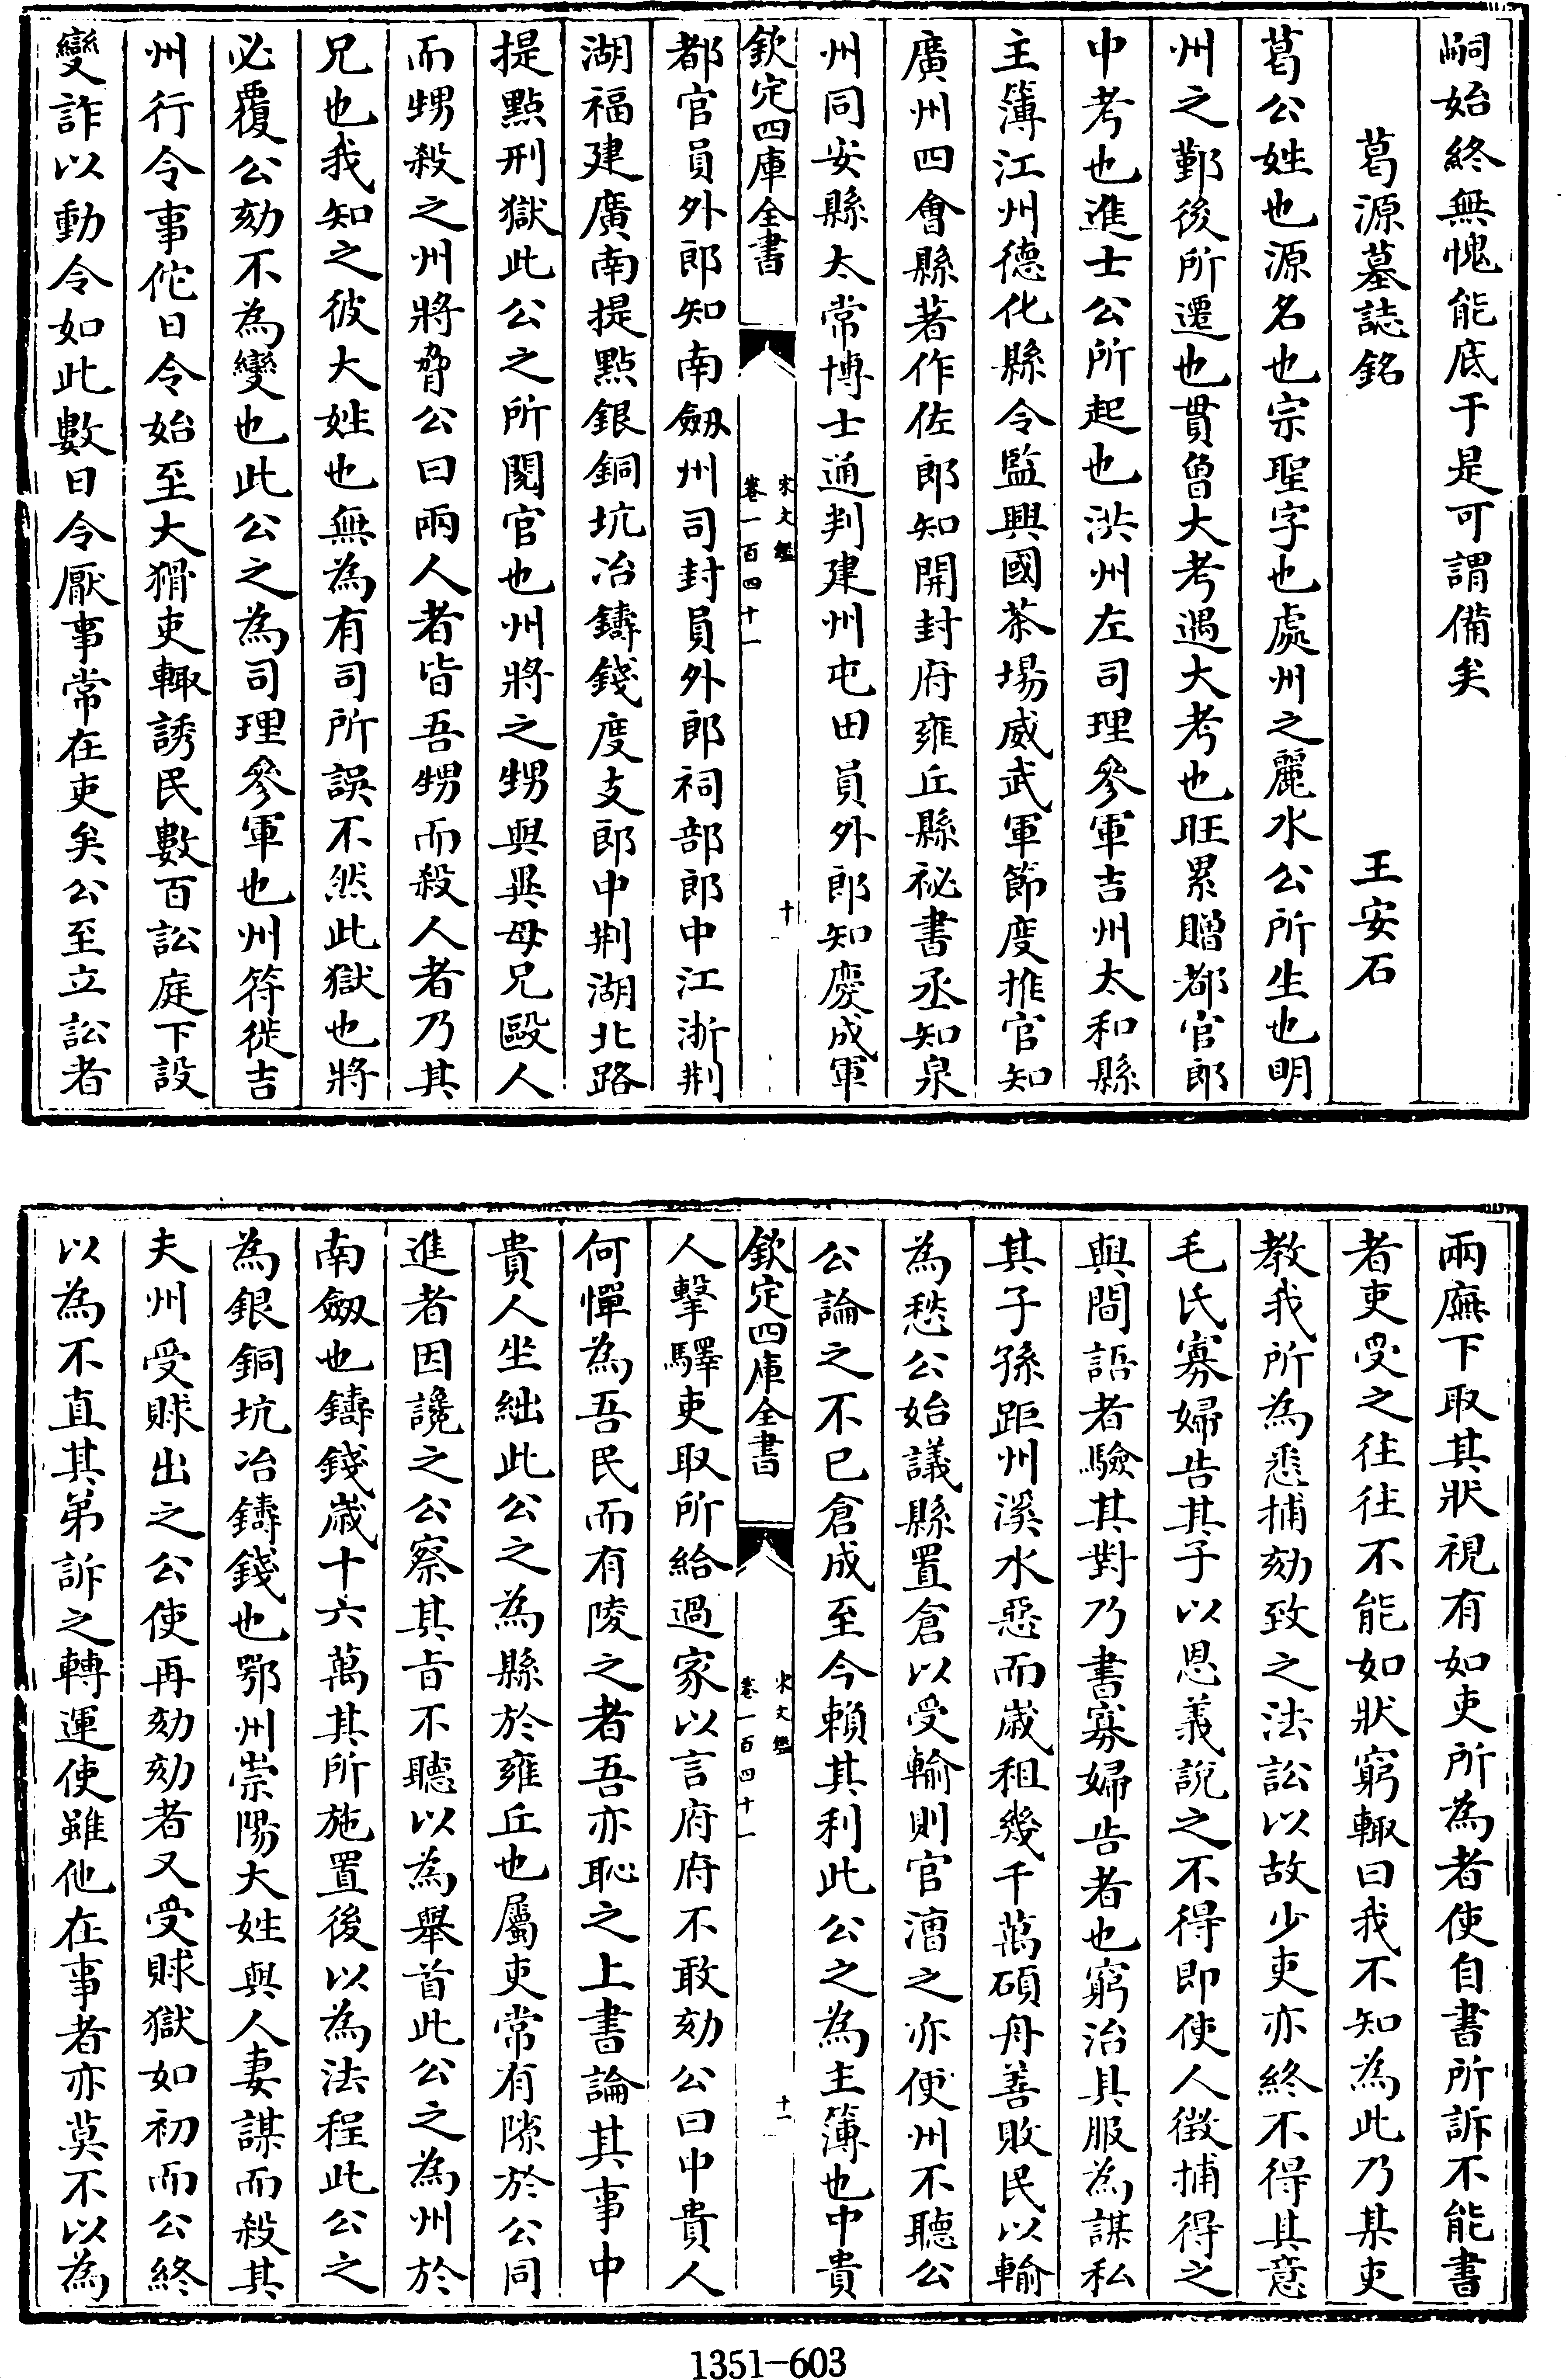 嗣始終無愧能底于是可謂備矣
葛源墓誌銘 王安石
葛公姓也源名也宗聖字也處州之麗水公所生也明
州之鄞後所遷也貫魯大考遇大考也旺累贈都官郎
中考也進士公所起也洪州左司理參軍吉州太和縣
主簿江州德化縣令監興國茶場威武軍節度推官知
廣州四會縣著作佐郎知開封府雍丘縣祕書丞知泉
州同安縣太常博士通判建州屯田員外郎知慶成軍
欽定四庫全書
宋文鑑
卷一百四十一
十
都官員外郎知南劔州司封員外郎祠部郎中江浙荆
湖福建廣南提點銀銅坑冶鑄錢度支郎中荆湖北路
提點刑獄此公之所閱官也州將之甥與異母兄毆人
而甥殺之州將脅公曰兩人者皆吾甥而殺人者乃其
兄也我知之彼大姓也無為有司所誤不然此獄也將
必覆公劾不為變也此公之為司理參軍也州符徙吉
州行令事佗日令始至大猾吏輙誘民數百訟庭下設
變詐以動令如此數日令厭事常在吏矣公至立訟者
兩廡下取其狀視有如吏所為者使自書所訴不能書
者吏受之往往不能如狀窮輙曰我不知為此乃某吏
教我所為悉捕劾致之法訟以故少吏亦終不得其意
毛氏寡婦告其子以恩義說之不得即使人徵捕得之
與間語者驗其對乃書寡婦告者也窮治具服為謀私
其子孫距州溪水惡而歲租幾千萬碩舟善敗民以輸
為愁公始議縣置倉以受輸則官漕之亦便州不聽公
公論之不已倉成至今賴其利此公之為主簿也中貴
欽定四庫全書
宋文鑑
卷一百四十一
十一
人擊驛吏取所給過家以言府府不敢劾公曰中貴人
何憚為吾民而有陵之者吾亦恥之上書論其事中
貴人坐絀此公之為縣於雍丘也屬吏常有隙於公同
進者因讒之公察其旨不聽以為舉首此公之為州於
南劔也鑄錢歲十六萬其所施置後以為法程此公之
為銀銅坑冶鑄錢也鄂州崇陽大姓與人妻謀而殺其
夫州受賕出之公使再劾劾者又受賕獄如初而公終
以為不直其弟訴之轉運使雖他在事者亦莫不以為
1351-603